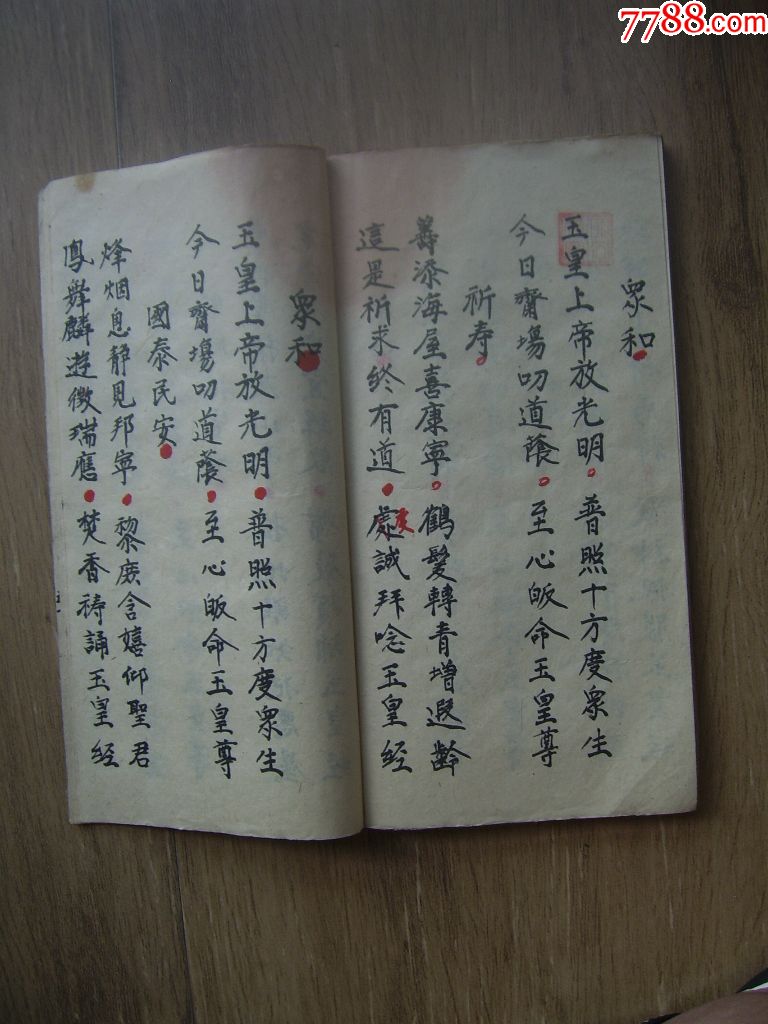 7788.com
衆和
玉皇上帝放光明。普照十方度衆生
今日齋場叨道蔭。至心皈命玉皇尊
祈寿。
籌添海屋喜康寧。鶴髮轉青增遐齡
這是祈求終有道。處虔誠拜唸玉皇经
衆和
玉皇上帝放光明。普照十方度衆生
今日齋場叨道蔭。至心皈命玉皇尊
國泰民安。
烽烟息静見邦寧。黎庶含嬉仰聖君
鳳舞麟遊徵瑞應。焚香祷誦玉皇经